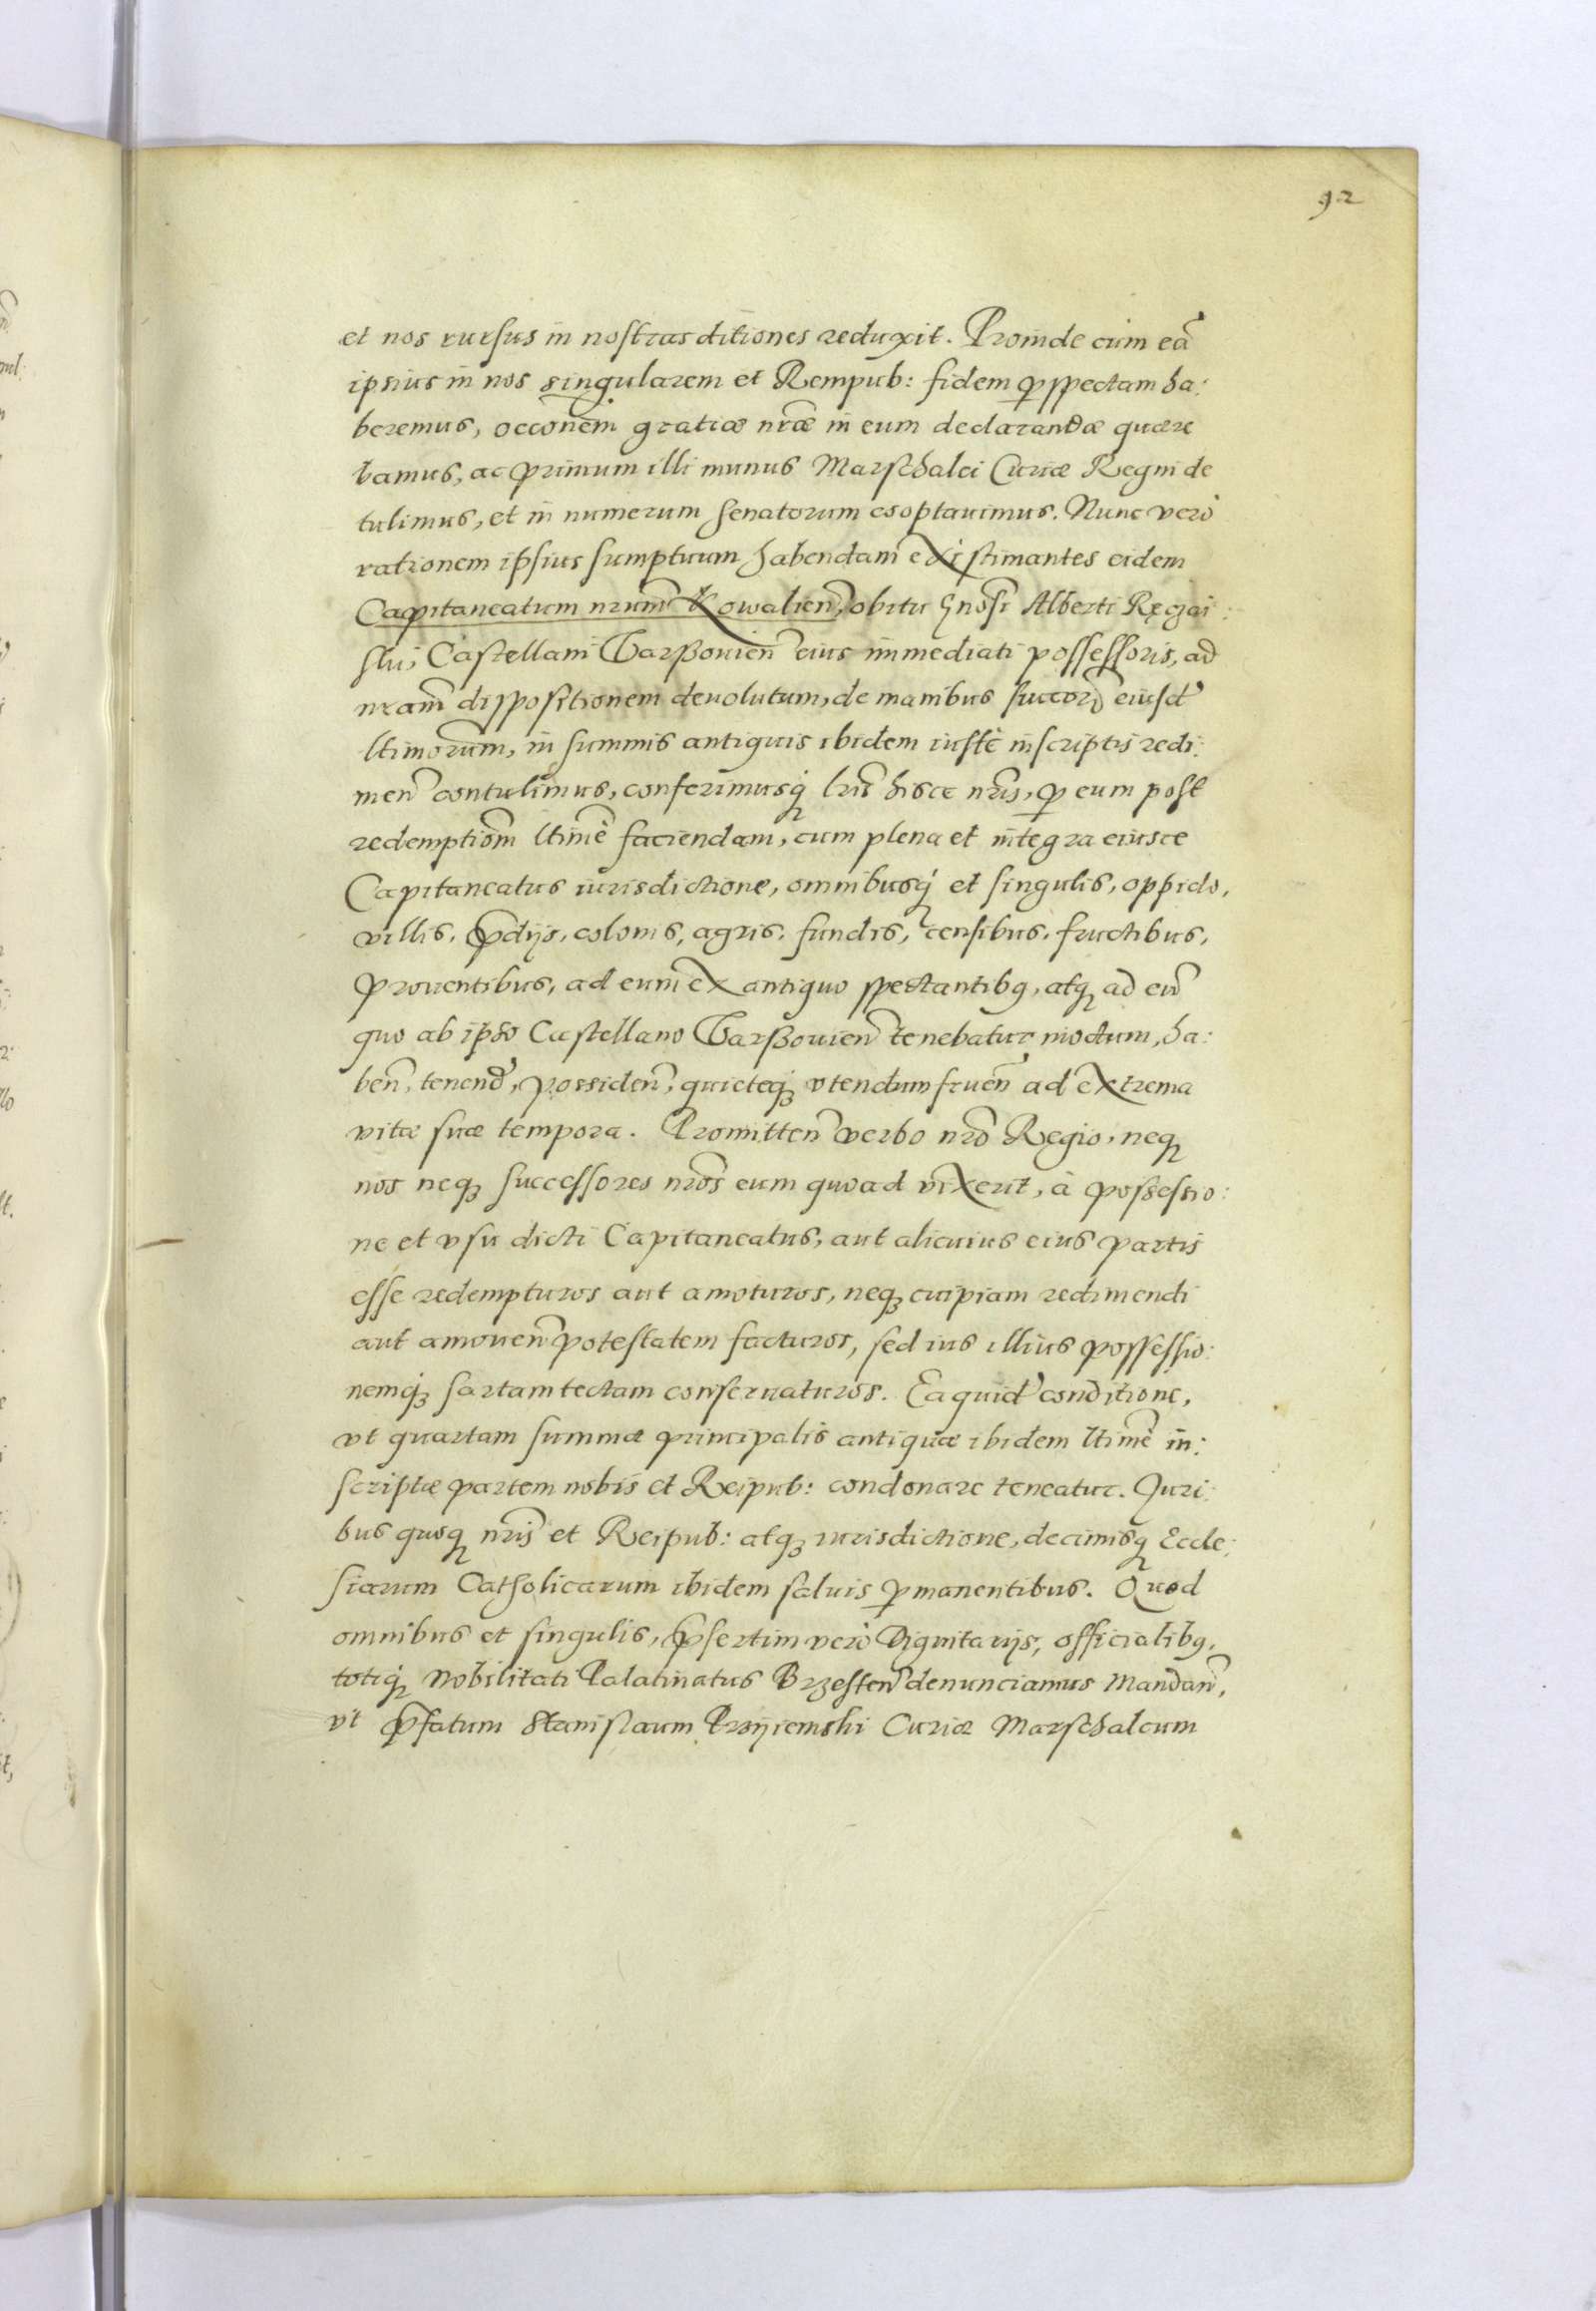 92
et nos rursus in nostras ditiones reduxit. Proinde cùm eã
ipsius in nos singularem et Rempub: fidem ꝑspectam ha:
beremus, occõnem gratiæ nr̃æ in eum declarandæ quære
bamus, ac primum illi munus Marschalci Curiæ Regni de
tulimus, et in numerum Senatorum cooptauimus. Nunc verò
rationem ipsius sumptuum habendam existimantes eidem
Capitaneatum nrum̃ Kowalien̄, obitu Gnosi Alberti Ręczai:
ski, Castellani Warßouien̄ eius immediati possessoris, ad
nram̃ dispositionem deuolutum, de manibus succorũ eiusd̃
ltimorum̃, in summis antiquis ibidem iustè inscriptis redi:
men̄ contulimus, conferimusq́ꝫ lris̃ hisce nris̃, ꝑ eum post
redemptiom̃ ltimẽ faciendam, cum plena et integra eiusce
Capitaneatus iurisdictione, omnibusq́ꝫ et singulis, oppido,
villis, p̃dijs, colonis, agris, fundis, censibus, fructibus,
prouentibus, ad eum ex antiquo spectantibꝰ, atqꝫ ad eũ
quo ab ipso Castellano Warßouien̄ tenebatur modum, ha:
ben̄, tenend̃, possiden̄, quieteq́ꝫ vtendum fruen̄ ad extrema
vitæ suæ tempora. Promitten̄ verbo nrõ Regio, neqꝫ
nos neqꝫ successores nros̃ eum quoad vixerit, à possessio:
ne et vsu dicti Capitaneatus, aut alicuius eius partis
esse redempturos aut amoturos, neqꝫ cuipiam redimendi
aut amouen̄ potestatem facturos, sed ius illius possessio:
nemq́ꝫ sartam tectam conseruaturos. Ea quid̃ conditione,
vt quartam summæ principalis antiquæ ibidem ltimẽ in:
scriptæ partem nobis et Reipub: condonare teneatur. Juri:
bus quoqꝫ nris̃ et Reipub: atqꝫ iurisdictione, decimisqꝫ Eccle:
siarum Catholicarum ibidem saluis ꝑmanentibus. Quod
omnibus et singulis, p̃sertim verò Dignitarijs, officialibꝰ,
totiq́ꝫ Nobilitati Palatinatus Brzesten̄ denunciamus Mandan̄,
vt p̃fatum Stanislaum Przyiemski Curiæ Marschalcum